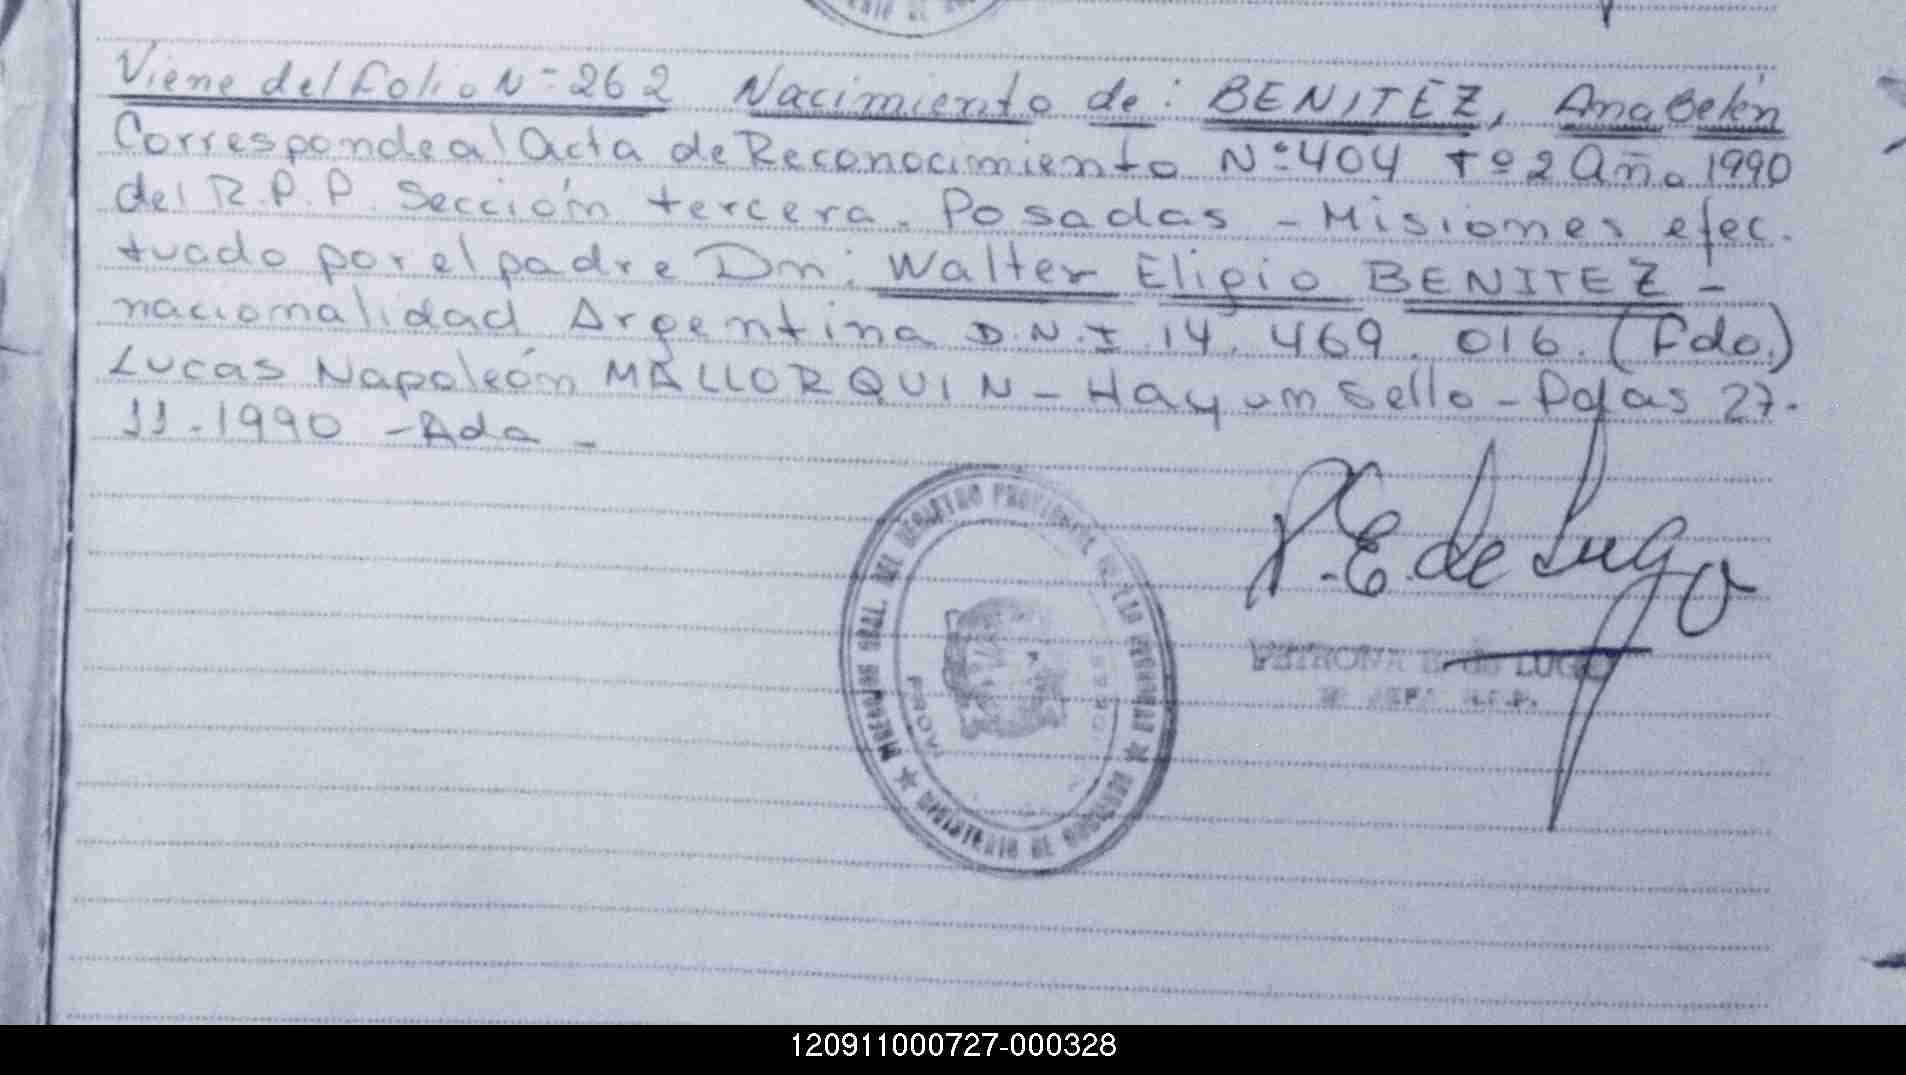 Viene del folio N=262 Nacimiento de: BENITEZ, Ana Belén
Corresponde al Acta de Reconocimiento N°404 Tº2 Año 1990
del R.P.P. Sección tercera. Posadas - Misiones efec.
tuado por el padre Dn: Walter Eligio BENITEZ -
nacionalidad Argentina D.N.I 14.469.016. (Fdo.)
Lucas Napoleón MALLORQUIN - Hay un Sello - Pdas 27.
11.1990 - Ada -
P.E. de Lugo
PETRONA E. de LUGO
DEL REGISTRO PROVINCIAL DE LAS PERSONAS ★ MINISTERIO DE GOBIERNO ★
120911000727-000328